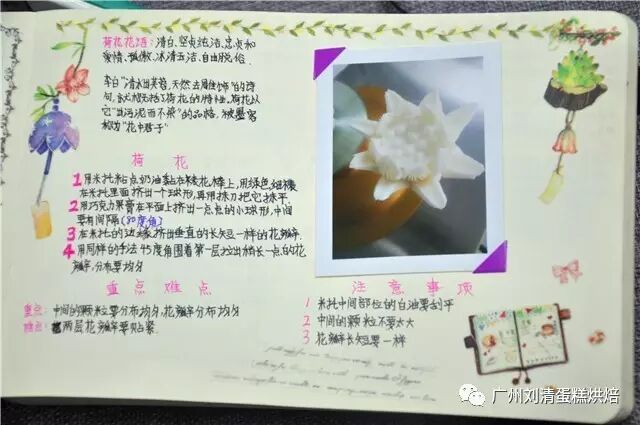 荷花花语：清白、坚贞纯洁、忠贞和
爱情、飘傲、冰清玉洁、自由脱俗
李白“清水出芙蓉，天然去雕饰”的诗
句，
荷花的特性。荷花以
它“出污泥而不染”的品格，被墨客
称为“花中君子”
荷 花
1 用米托粘点奶油黏在矮花棒上，用绿色细裱
在米托里面挤出一个球形，再用抹刀把它抹平
2 用巧克力果膏在平面上挤出一点点的小球形，中间
要有间隔(80度角)
3 在米托的边缘挤出垂直的长短一样的花瓣
4 用同样的手法45度角围着第一层拉出稍长一点的花
瓣，分布要均匀
重 点 难 点
重点：中间的颗粒要分布均匀，花瓣分布均匀
难点：两层花瓣要贴紧
注 意 事 项
1 米托中间部位的白油要刮平
2 中间的颗粒不要太大
3 花瓣长短要一样
广州刘清蛋糕烘焙